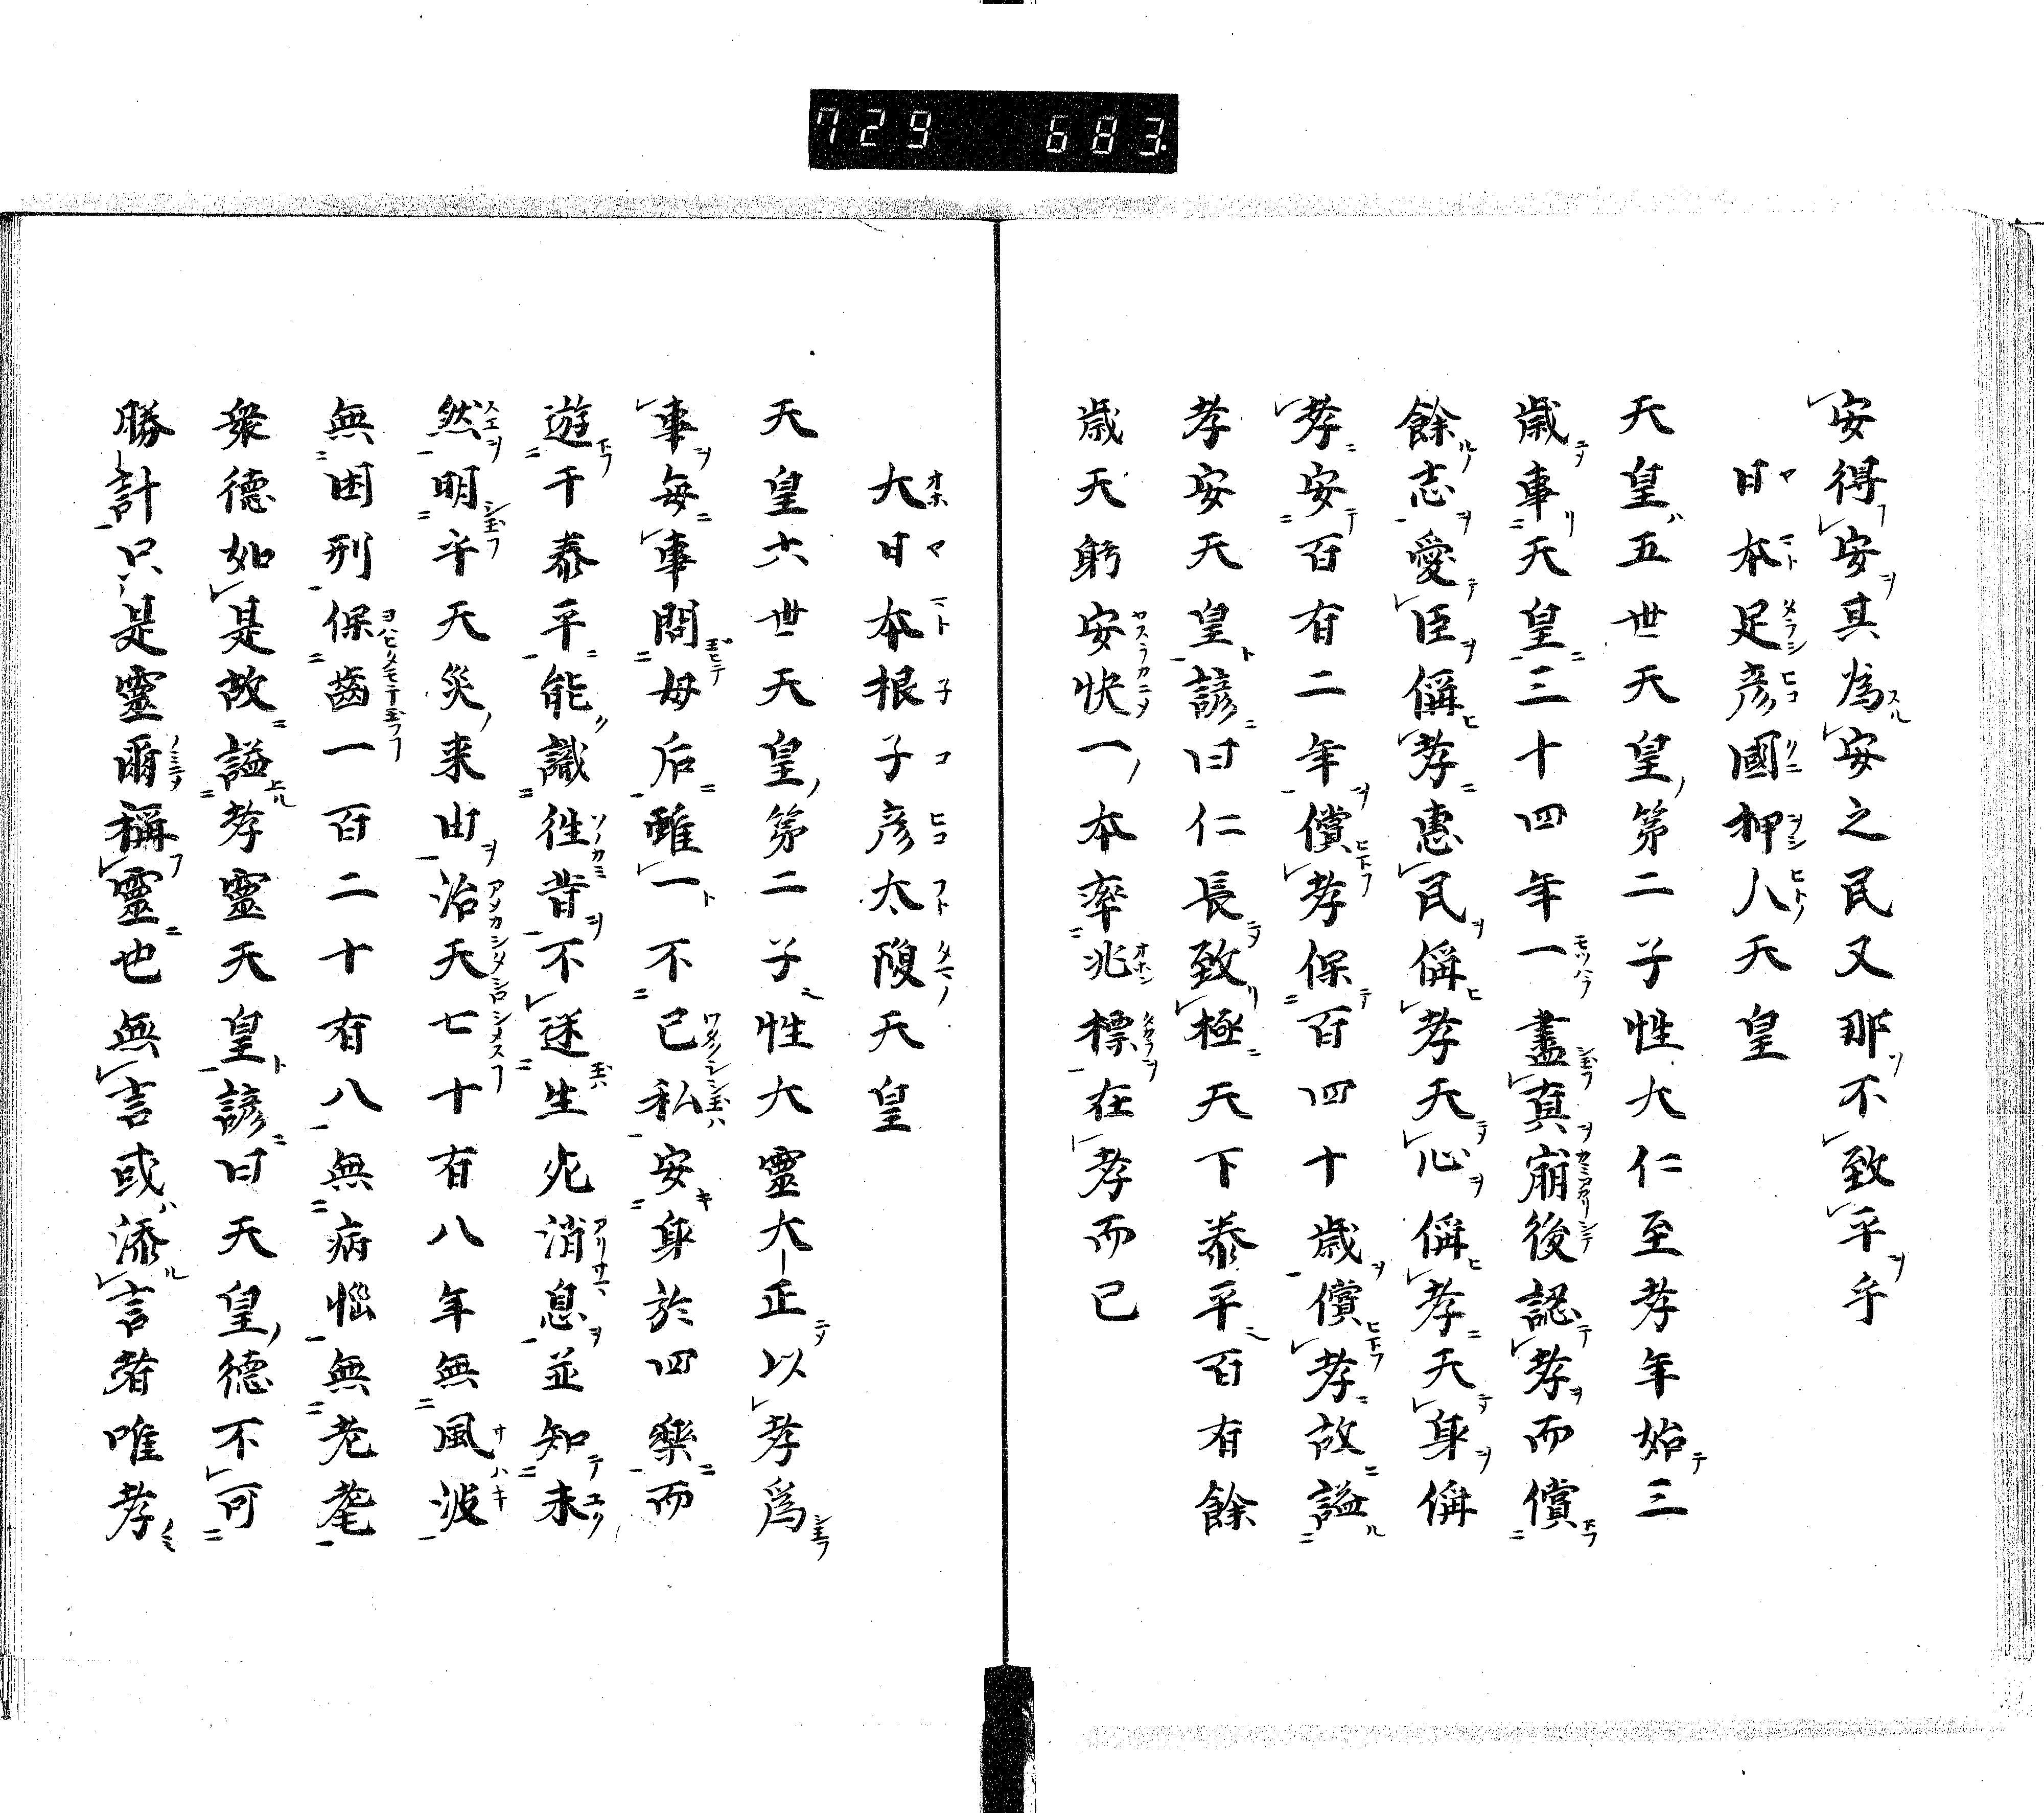 729 683
安得安其為安之民又那不致平乎
日本足彦國押人天皇
天皇五世天皇第二子性大仁至孝年始三
歳事天皇三十四年一盡真崩後認孝而償
餘志愛臣偁孝惠民偁孝天心偁孝天身偁
孝安百有二年償孝保百四十歳償孝故謚
孝安天皇諺曰仁長致極天下泰平百有餘
歳天躬安快一本率兆標在孝而已
大日本根子彦太瓊天皇
天皇六世天皇第二子性大靈大正以孝爲
事每事問母后雖一不已私安身於四樂而
遊于泰平能識徃昔不迷生死消息並知未
然明辛天災来由治天七十有八年無風波
無困刑保齒一百二十有八無病惱無老耄
衆德如是故謚孝靈天皇諺曰天皇德不可
勝計只是靈爾稱靈也無言或添言者唯孝